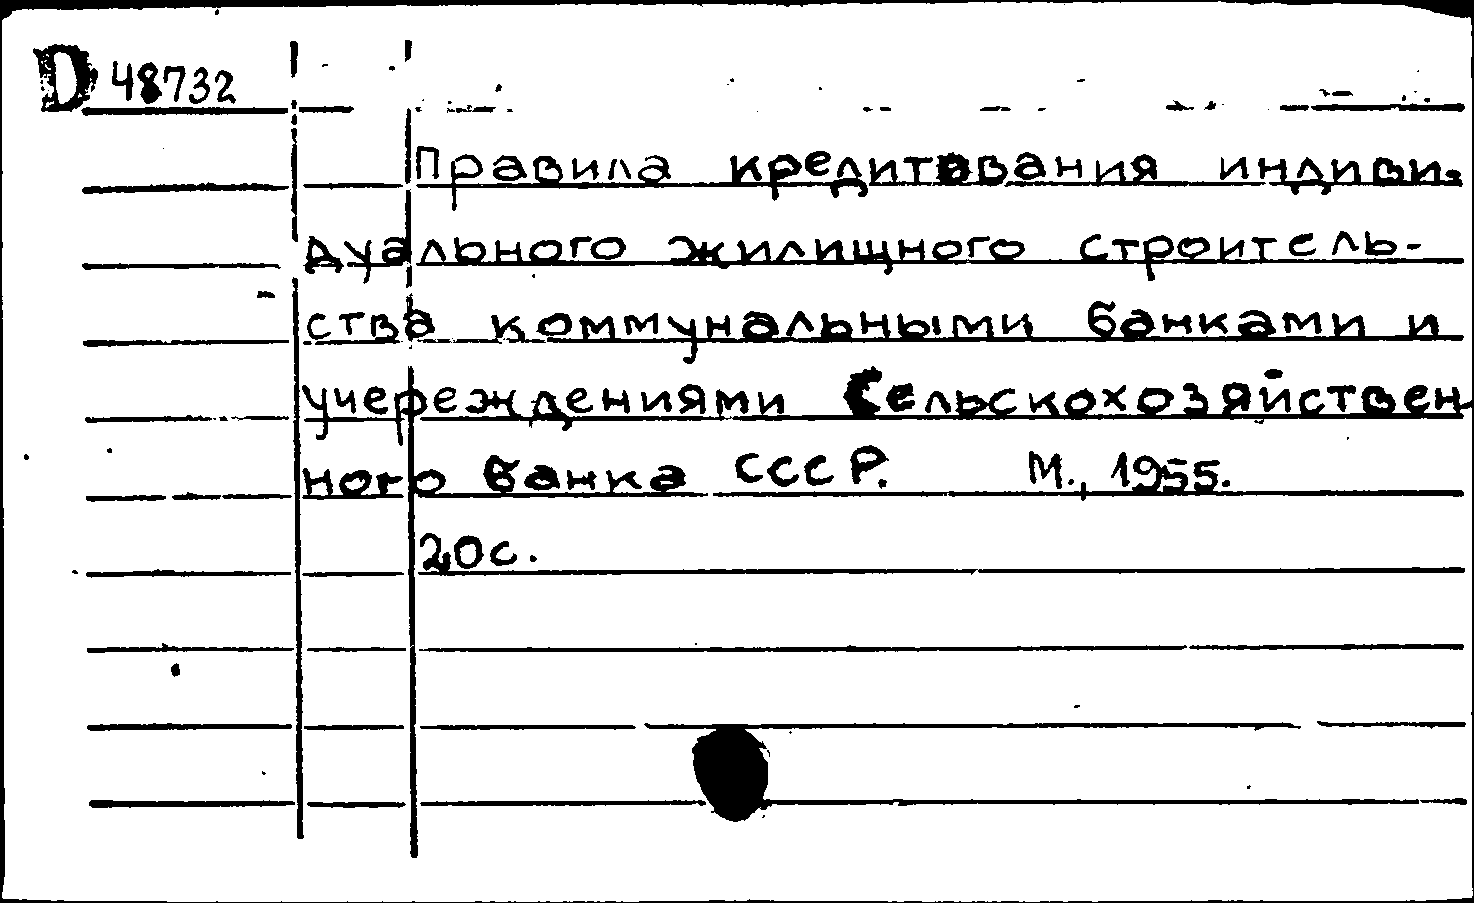 D 48732
Правила кредитования индиви-
дуального жилищного строитель-
ства коммунальными банками и
учереждениями Сельскохозяйствен-
ного банка СССР. М., 1955.
20с.